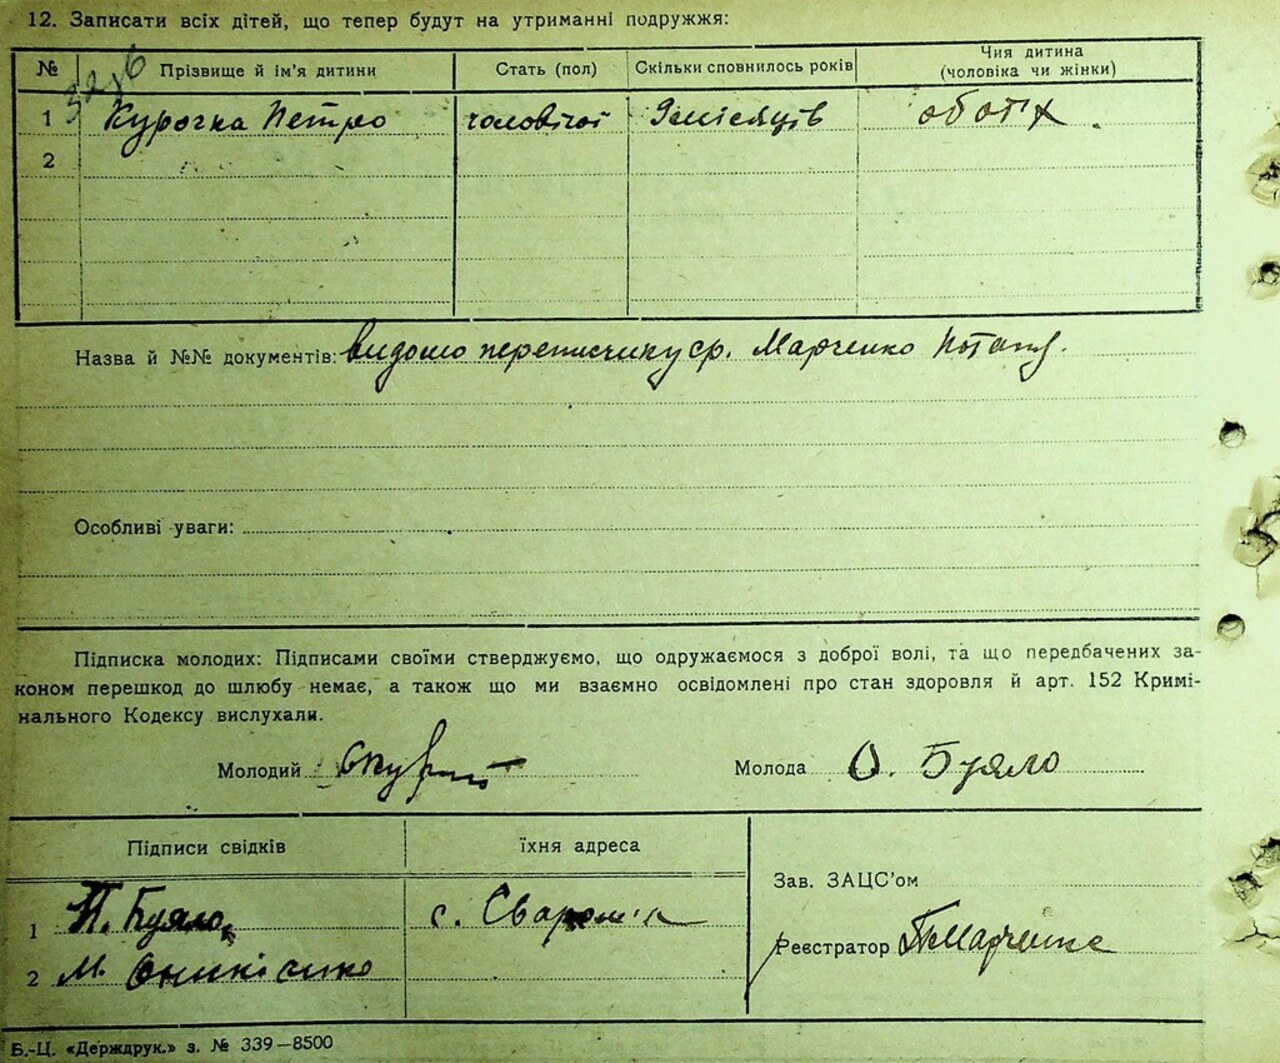 12. Записати всіх дітей, що тепер будут на утриманні подружжя:
№ Прізвище й ім'я дитини Стать (пол) Скільки сповнилось років Чия дитина (чоловіка чи жінки)
1 Курочка Петро чоловічої 9 місяців обоїх
2
Назва й №№ документів: видомо переписчику ср. Марченко Потапу.
Особливі уваги:
Підписка молодих: Підписами своїми стверджуємо, що одружаємося з доброї волі, та що передбачених за-
коном перешкод до шлюбу немає, а також що ми взаємно освідомлені про стан здоровля й арт. 152 Кримі-
нального Кодексу вислухали.
Молодий Молода О. Буяло
Підписи свідків їхня адреса
Зав. ЗАЦС'ом
1 П. Буяло с.
Реєстратор ПМарченко
2 М.
Б.-Ц. «Держдрук.» з. № 339—8500